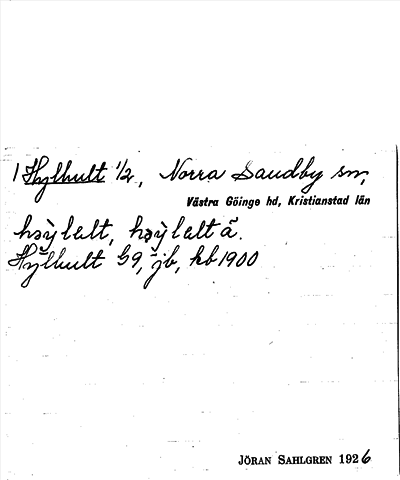 1 Hylhult 1/2, Norra Sandby sn,
Västra Göinge hd, Kristianstad län
həỳlelt, həỳleltä.
Hylhult G9, jb, kb 1900
JÖRAN SAHLGREN 1926